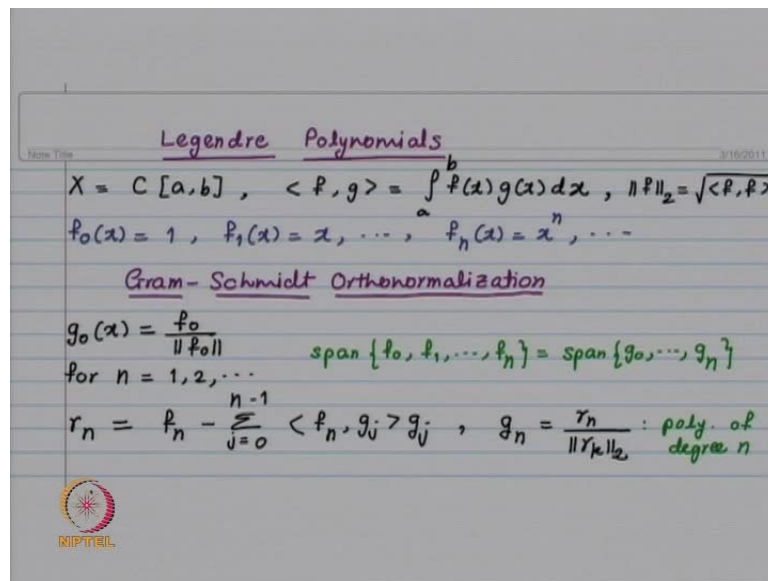 Legendre Polynomials
Note Title 3/16/2011
X = C [a,b] , < f, g > = ∫_a^b f(x) g(x) dx , ||f||_2 = √<f, f>
f_0(x) = 1 , f_1(x) = x, ⋯, f_n(x) = x^n, ⋯
Gram-Schmidt Orthonormalization
g_0(x) = f_0 / ||f_0||
span {f_0, f_1, ⋯, f_n} = span {g_0, ⋯, g_n}
for n = 1, 2, ⋯
r_n = f_n - Σ_{j=0}^{n-1} < f_n, g_j > g_j , g_n = r_n / ||r_k||_2 : poly. of
degree n
NPTEL